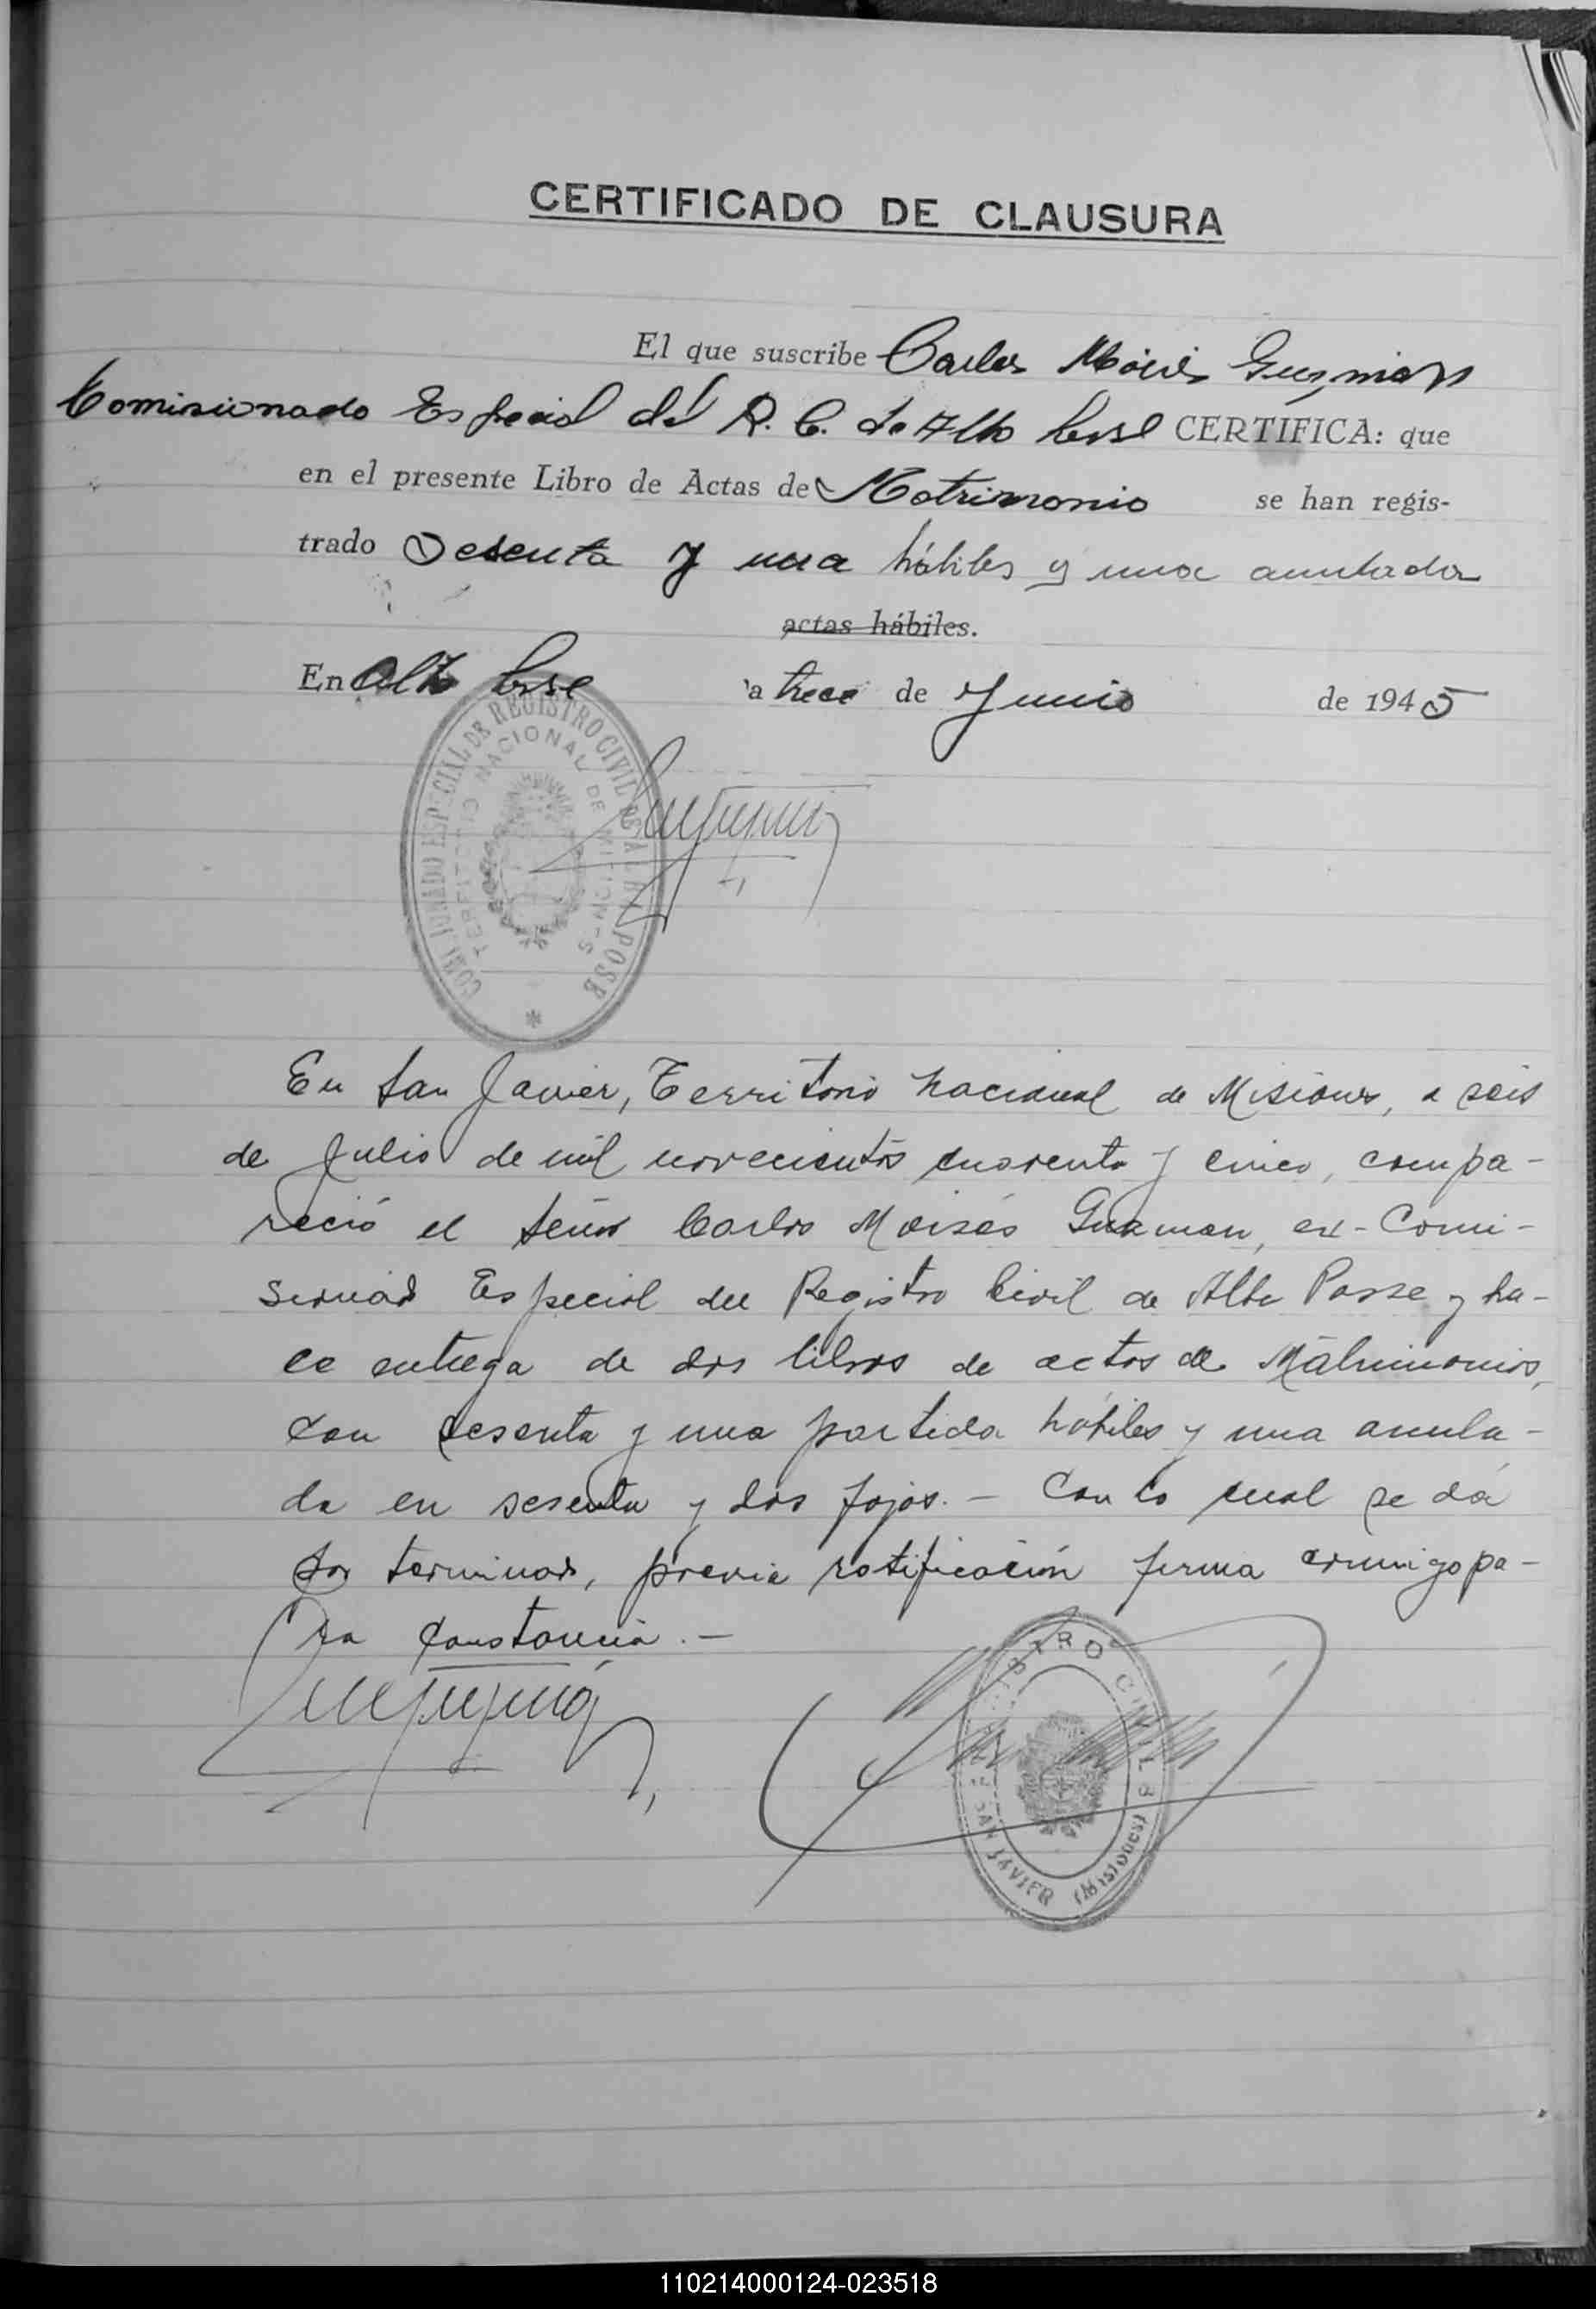 CERTIFICADO DE CLAUSURA
El que suscribe Carlos Moisés Guzman
Comisionado Especial del R. C. de Alto Posse CERTIFICA: que
en el presente Libro de Actas de Matrimonio se han regis-
trado Sesenta y una hábiles y una anulada
actas hábiles.
En Alto Posse a trece de Junio de 1945
COMISIONADO ESPECIAL DE REGISTRO CIVIL DE ALTO POSSE
TERRITORIO NACIONAL DE MISIONES
En San Javier, Territorio Nacional de Misiones, a seis
de Julio de mil novecientos cuarenta y cinco, compa-
reció el Señor Carlos Moisés Guzman, ex-Comi-
sionado Especial del Registro Civil de Alto Posse y ha-
ce entrega de dos libros de actos de Matrimonios,
con sesenta y una partida hábiles y una anula-
da en sesenta y dos fojas. - Con lo cual se dá
por terminado, previa ratificación firma conmigo pa-
ra constancia. -
REGISTRO CIVIL
SAN JAVIER (Misiones)
110214000124-023518